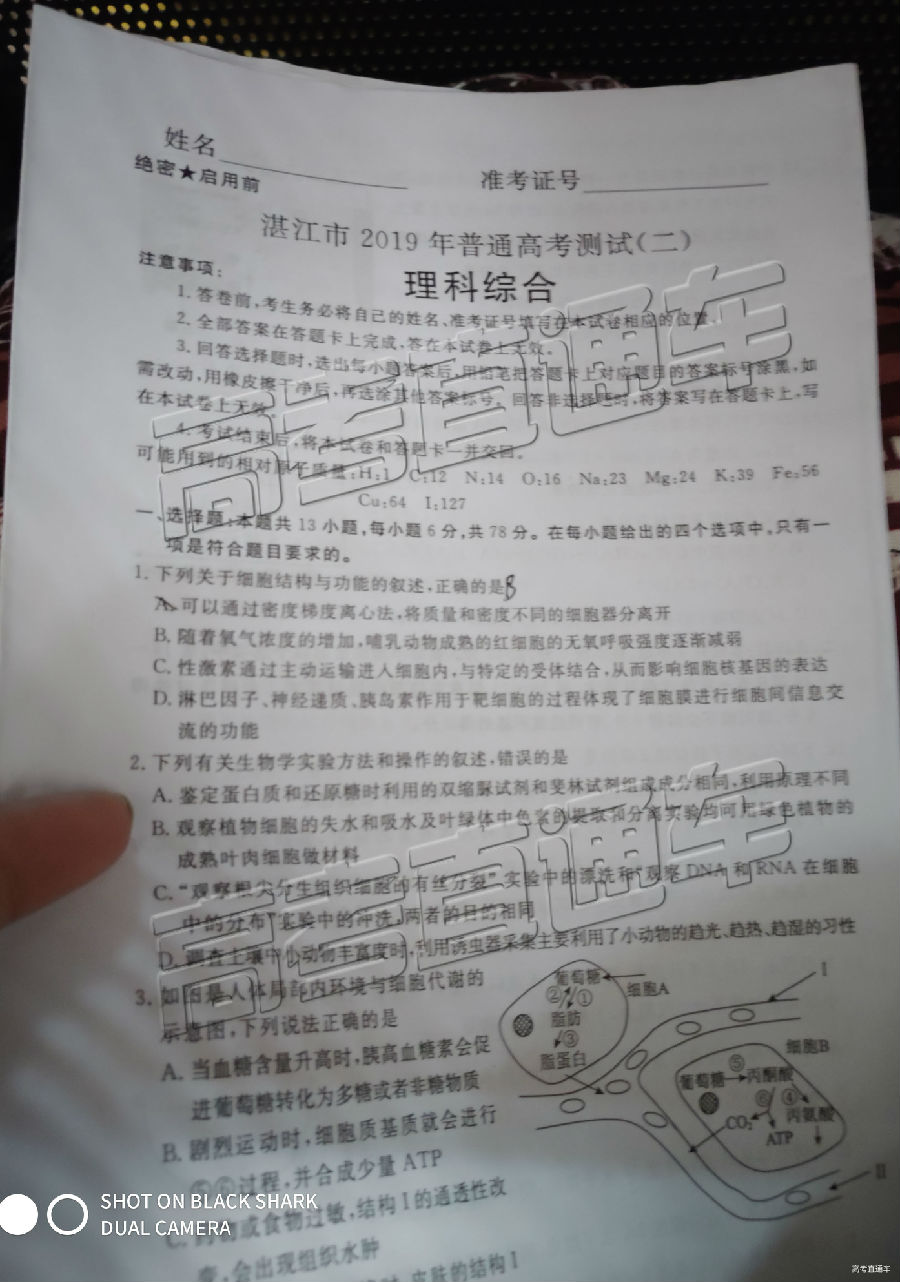 姓名
绝密★启用前
准考证号
湛江市 2019 年普通高考测试(二)
理科综合
注意事项:
1. 答卷前,考生务必将自己的姓名、准考证号填写在本试卷相应的位置。
2. 全部答案在答题卡上完成,答在本试卷上无效。
3. 回答选择题时,选出每小题答案后,用铅笔把答题卡上对应题目的答案标号涂黑,如
需改动,用橡皮擦干净后,再选涂其他答案标号。回答非选择题时,将答案写在答题卡上,写
在本试卷上无效。
4. 考试结束后,将本试卷和答题卡一并交回。
可能用到的相对原子质量:H:1 C:12 N:14 O:16 Na:23 Mg:24 K:39 Fe:56
Cu:64 I:127
一、选择题:本题共 13 小题,每小题 6 分,共 78 分。在每小题给出的四个选项中,只有一
项是符合题目要求的。
1. 下列关于细胞结构与功能的叙述,正确的是B
A. 可以通过密度梯度离心法,将质量和密度不同的细胞器分离开
B. 随着氧气浓度的增加,哺乳动物成熟的红细胞的无氧呼吸强度逐渐减弱
C. 性激素通过主动运输进入细胞内,与特定的受体结合,从而影响细胞核基因的表达
D. 淋巴因子、神经递质、胰岛素作用于靶细胞的过程体现了细胞膜进行细胞间信息交
流的功能
2. 下列有关生物学实验方法和操作的叙述,错误的是
A. 鉴定蛋白质和还原糖时利用的双缩脲试剂和斐林试剂组成成分相同,利用原理不同
B. 观察植物细胞的失水和吸水及叶绿体中色素的提取和分离实验均可用绿色植物的
成熟叶肉细胞做材料
C. “观察根尖分生组织细胞的有丝分裂”实验中的漂洗和“观察 DNA 和 RNA 在细胞
中的分布”实验中的冲洗,两者的目的相同
D. 调查土壤中小动物丰富度时,利用诱虫器采集主要利用了小动物的趋光、趋热、趋湿的习性
3. 如图是人体局部内环境与细胞代谢的
示意图,下列说法正确的是
A. 当血糖含量升高时,胰高血糖素会促
进葡萄糖转化为多糖或者非糖物质
B. 剧烈运动时,细胞质基质就会进行
⑤⑥过程,并合成少量 ATP
C. 药物或食物过敏,结构 I 的通透性改
变,会出现组织水肿
皮肤的结构 I
葡萄糖
② ①
脂肪
③
脂蛋白
细胞A
I
细胞B
葡萄糖 ⑤ 丙酮酸
⑥ ④
CO₂ 丙氨酸
ATP
II
高考直通车
高考直通车
SHOT ON BLACK SHARK
DUAL CAMERA
高考直通车